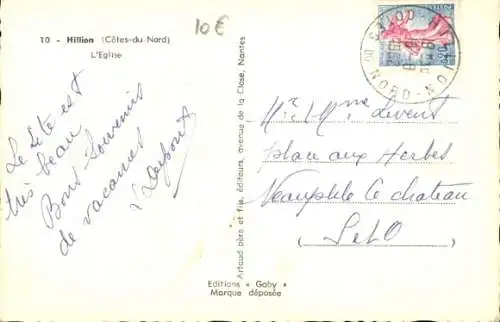 10€
10 - Hillion (Côtes-du-Nord)
L'Eglise
POSTES
0,20
NORD
Le site est
très beau
Bons souvenirs
de vacances
Artaud père et fils, éditeurs, avenue de la Close, Nantes
Editions « Gaby »
Marque déposée
Mr et Mme
place aux Herbes
Neauphle le chateau
S et O